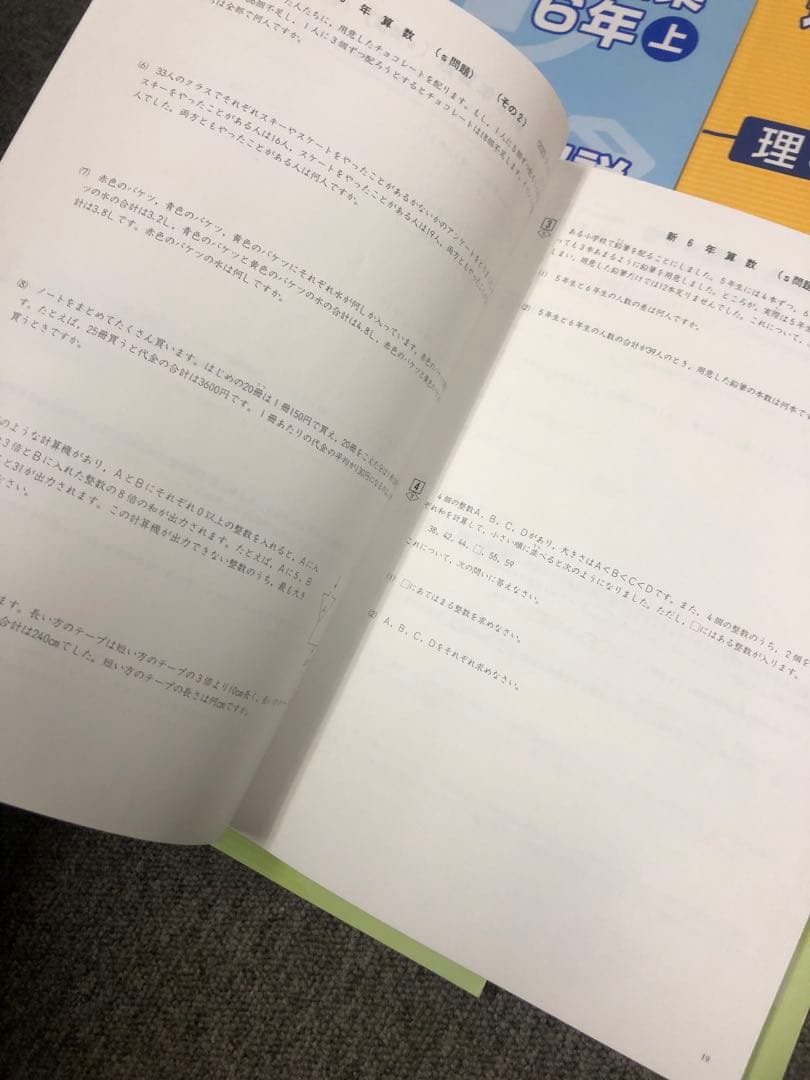 6年上
理
６年算数 （ｓ問題） （その２）
た人たちに，用意したチョコレートを配ります。もし，１人に５個ずつ配
個不足し，１人に３個ずつ配ろうとするとチョコレートは18個不足します。
は全部で何人ですか。
(6) 33人のクラスでそれぞれスキーやスケートをやったことがあるかないかのアンケートをとり
スキーをやったことがある人は16人，スケートをやったことがある人は19人，両方ともやった
人でした。両方ともやったことがある人は何人ですか。
(7) 赤色のバケツ，青色のバケツ，黄色のバケツにそれぞれ水が何しか入っています。
ツの水の合計は3.2L，青色のバケツと黄色のバケツの水の合計は4.8L，赤色のバケツと黄色
計は3.8Lです。赤色のバケツの水は何Lですか。
(8) ノートをまとめてたくさん買います。はじめの20冊は１冊150円で買え，20冊をこえた分は
す。たとえば，25冊買うと代金の合計は3600円です。１冊あたりの代金の平均が130円になるのは
買うときですか。
のような計算機があり，AとBにそれぞれ０以上の整数を入れると，Aに入
３倍とBに入れた整数の８倍の和が出力されます。たとえば，Aに5，B
と31が出力されます。この計算機が出力できない整数のうち，最も大き
ださい。
ます。長い方のテープは短い方のテープの３倍より10cm長く，
合計は240cmでした。短い方のテープの長さは何cmですか。
新６年算数 （ｓ問題
3
ある小学校で鉛筆を配ることにしました。５年生には４本ずつ，６
っても３本あまるように鉛筆を用意しました。ところが，実際は５年生
しまい，用意した鉛筆だけでは12本足りませんでした。これについて，
(1) ５年生と６年生の人数の差は何人ですか。
(2) ５年生と６年生の人数の合計が39人のとき，用意した鉛筆の本数は何本で
4
４個の整数A，B，C，Dがあり，大きさはA＜B＜C＜Dです。また，４個の整数のうち，２個を
ぞれ和を計算して，小さい順に並べると次のようになりました。ただし，□にはある整数が入ります。
38，42，44，□，55，59
これについて，次の問いに答えなさい。
(1) □にあてはまる整数を求めなさい。
(2) A，B，C，Dをそれぞれ求めなさい。
19